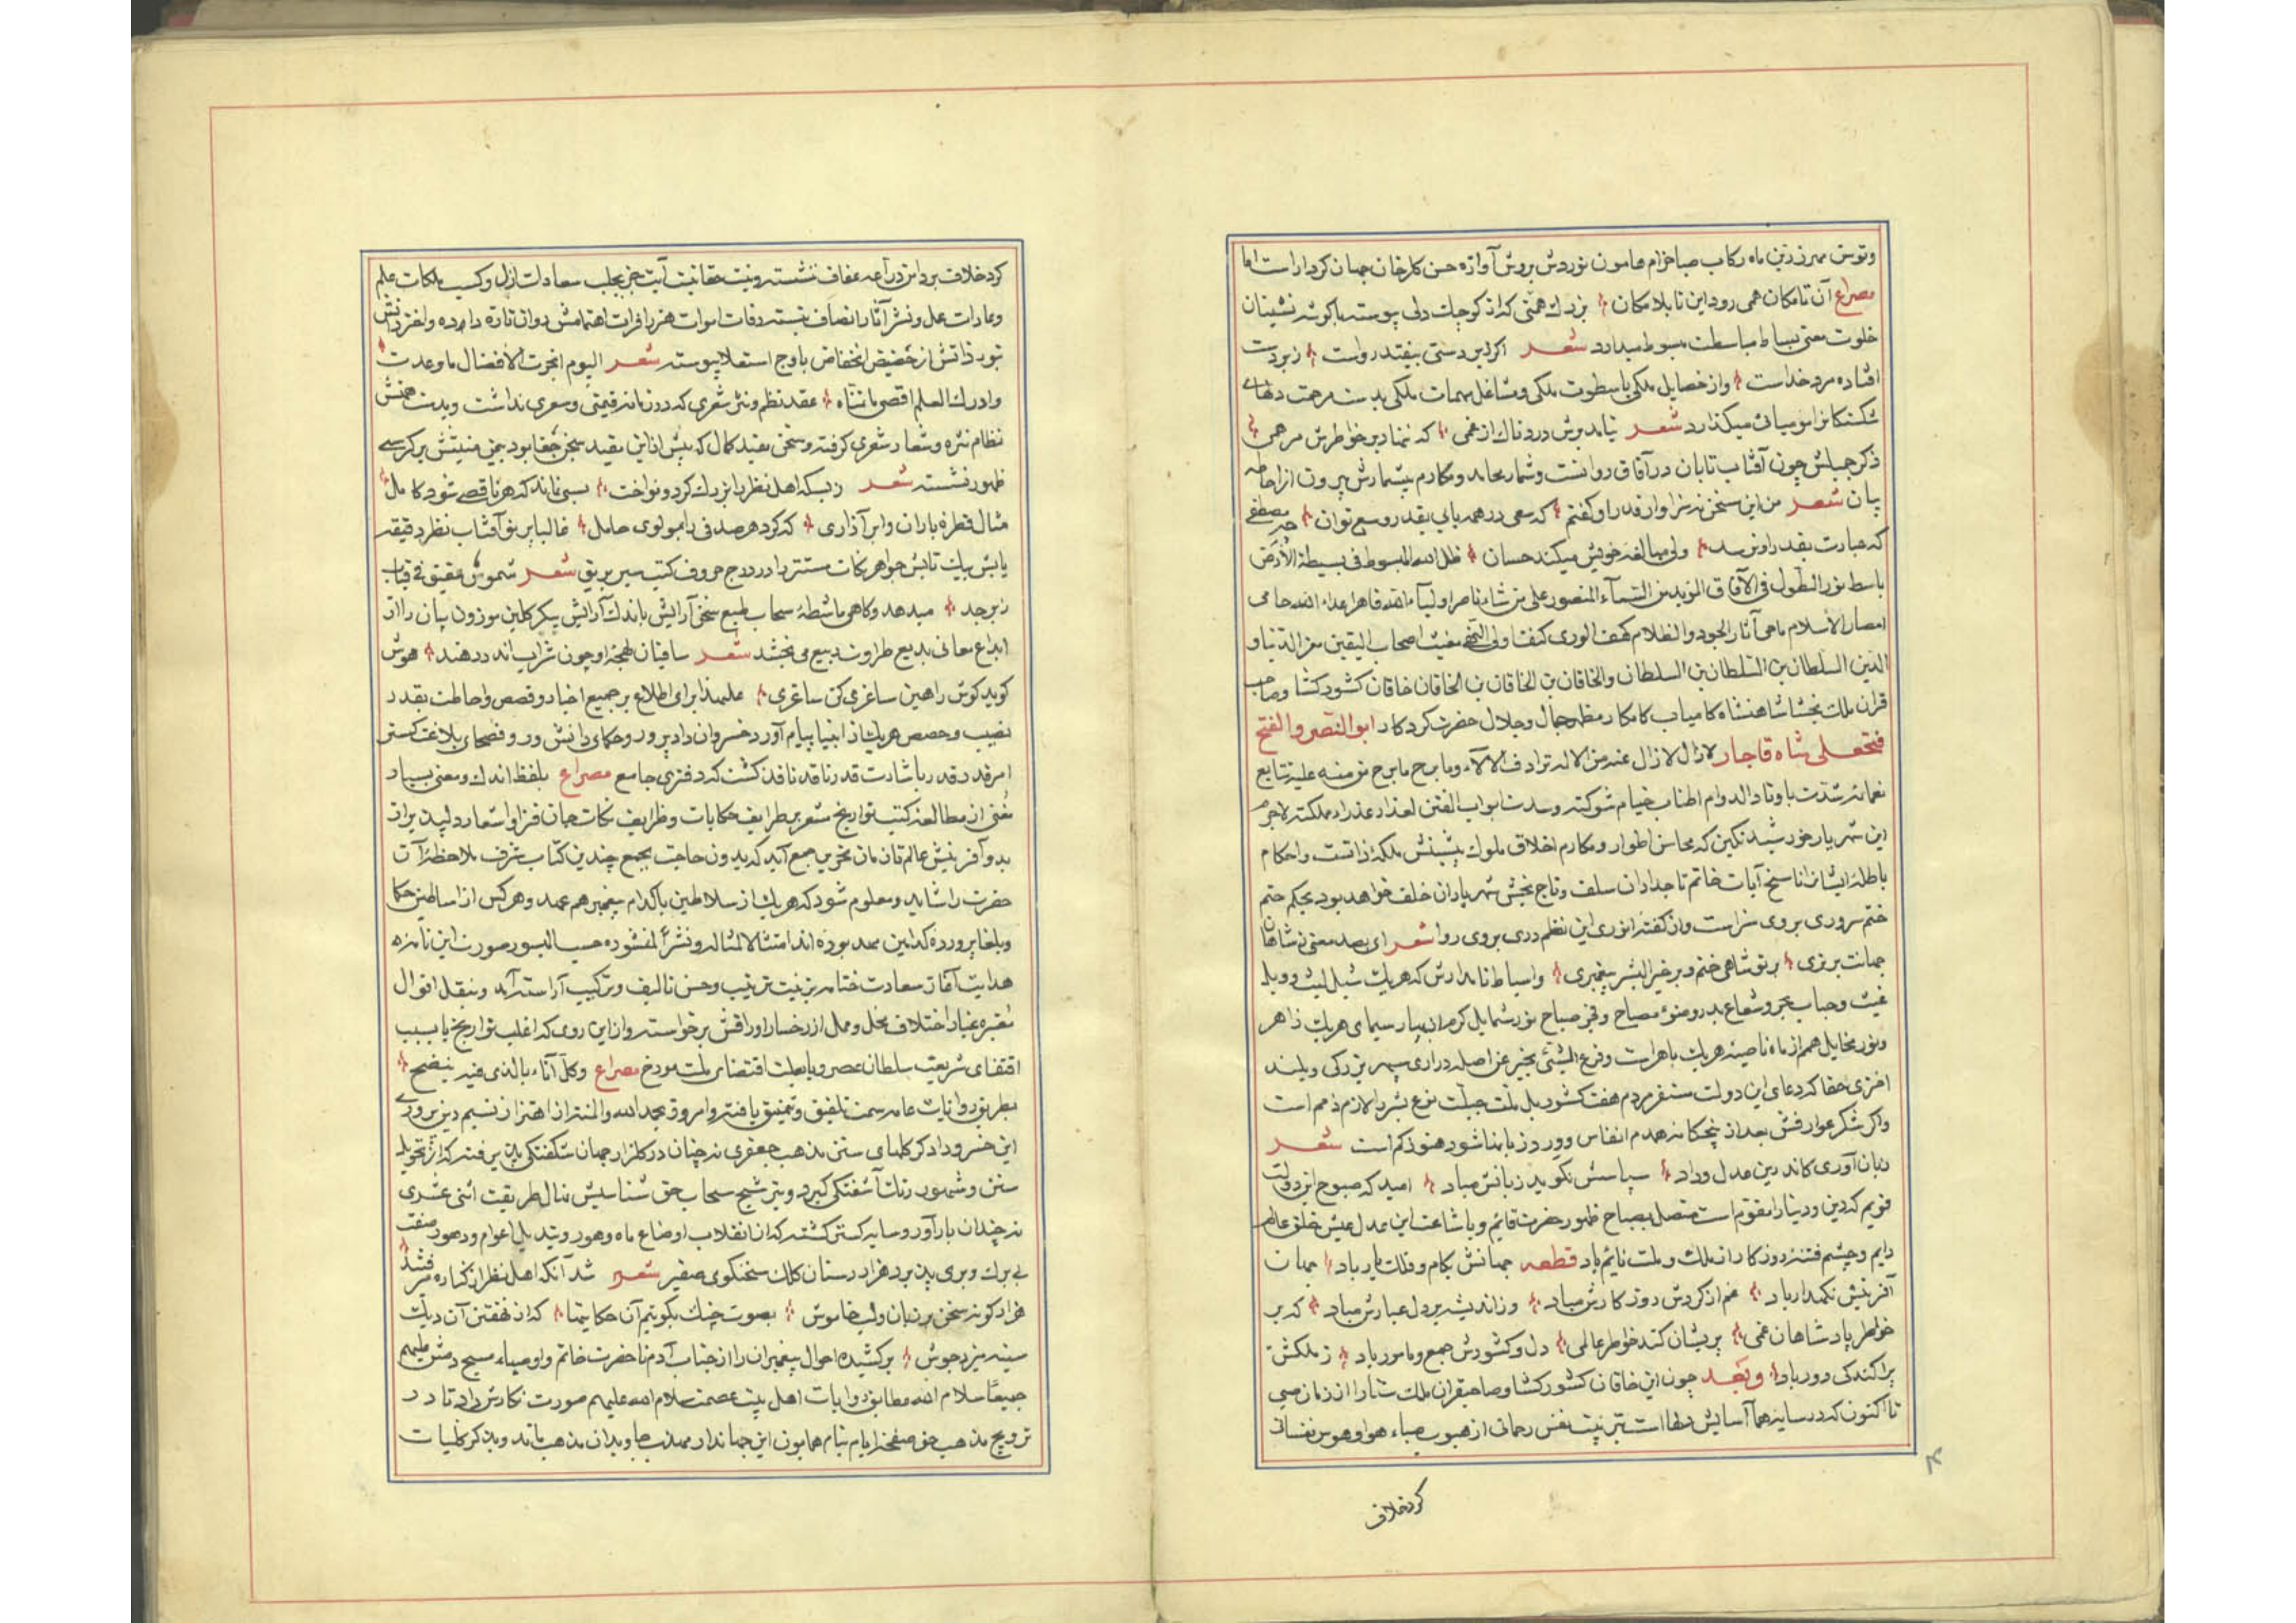 وتوسن مهر زرین ماه رکاب صبا خرام هامون نوردش بروش آوازه حسن کارخان جهان کردار است اما
مصراع آن تا مکان همی رود این تا بلامکان بزرك همتی که از کوچك دلی پیوسته با گوشه نشینان
خلوت معنی بساط مباسطت مبسوط میدارد شعر اگر زیردستی بیفتد رواست زبردست
افتاده مرد خداست واز خصایل ملکی با سطوت ملکی ومشاغل مهمات ملکی بدست مرحمت دلهای
شکستکانرا مومیائی میکذارد شعر نیاید برش دردناك از غمی که ننهاد بر خواطرش مرهمی
ذکر جمیلش چون آفتاب تابان در آفاق روانست وشمار محامد ومکارم بیشمارش بیرون از احاطه
بیان شعر من این سخن نه سزاوار قدر او گفتم که سعی در همه یابی بقدر وسع توان
که عبارت بقدر او نرسد ولی مبالغه خویش میکند حسان ظل الله المبسوط فی بسیطة الأرض
باسط نور الطول فی الآفاق الموید من السمآء المنصور علی من شاء ناصر اولیآء الله قاهر اعداء الله حامی
امصار الأسلام ماحی آثار الجود والظلام کهف الوری کنف اولی النهی مغیث اصحاب الیقین معز الدنیا و
الدین السلطان بن السلطان بن السلطان والخاقان بن الخاقان بن الخاقان خاقان کشور کشا وصاحب
قران ملك بخشا شاهنشاه کامیاب کامکار مظهر جمال وجلال حضرت کردکار ابو النصر والفتح
فتحعلی شاه قاجار لا زال لا زال عنه من الاله ترادف الآلآء وما برح ما برح من منه علیه تتابع
نعمائه شدت باوتاد الدوام اطناب خیام شوکته وسدت ابواب الفتن لعذار عذراء مملکته لاجرم
این شهریار خورشید نکین که محاسن اطوار ومکارم اخلاق ملوك پیشینش ملکه ذاتست واحکام
باطله ایشانرا ناسخ آیات خاتم تاجداران سلف وتاج بخش شهریاران خلف خواهد بود بحکم ختم
ختم سروری بروی سزاست واز کفته انوری این نظم دری بروی روا شعر ای بصد معنی ز شاهان
جهانت برتری بر تو شاهی ختم وبر خیر البشر پیغمبری واسباط نامدارش که هریك شبل لیث و وبل
غیث وحباب بحر وشعاع بدر وضوء مصباح وفجر صباح نور شمایل کرم از بهار سیمای هریك ظاهر
ونور مخایل همم از ماه ناصیه هریك باهراست وفرع الشئ یخبر عن اصله دراری سپهر بزرکی وبلند
اختری حقا که دعای این دولت مستقر مردم هفت کشور بل ملت جبلت نوع بشر را لازم ذمم است
واکر شکر عوارفش بعد از پنجکانه همدم انفاس وورد زبانها شود هنوز کم است شعر
زبان آوری کاندرین عدل وداد سپاسش نکوید زبانش مباد امید که صبوح این دولت
قویم که دین ودنیا را مقوم است متصل بصباح ظهور حضرت قائم وباشاعت این عدل عیش خلق عالم
دایم وچشم فتنه روزکار از ملك وملت نایم باد قطعه جهانش بکام وفلك یار باد جهان
آفرینش نکهدار باد غم از کردش روزکارش مباد وز اندیشه بر دل غبارش مباد که بر
خواطر پادشاهان غمی پریشان کند خواطر عالمی دل وکشورش جمع ومعمور باد ز ملکش
پراکندکی دور باد وبعد چون این خاقان کشور کشا وصاحبقران ملك ستان را از زمان صبی
تا اکنون که در سایه هما آسایش دلها است تربیت نفس رحمانی از هبوب صباء هوا وهوس نفسانی
کرد خلاف
کرد خلاف بر دامن دراعه عفاف ننشسته ونیت حقانیت آیت جز بجلب سعادات ازل وکسب ملکات علم
وعادات عمل ونشر آثار انصاف نبسته رفات اموات هنر را فرات اهتمامش روان تازه داده واختر دانش
نور ذاتش از حضیض انخفاض باوج استعلا پیوسته شعر الیوم انجزت الأفضال ما وعدت
وادرك العلم اقصی ما تمناه عقد نظم ونثر شعری که در زمانه قیمتی وسعری نداشت وبدست همتش
نظام نثره وشعار شعری گرفته وسخن بقید کمال که پیش از این مقید سجن خفا بود بیمن منیتش بر کرسی
ظهور نشسته شعر زبسکه اهل نظر را بزرك کرد ونواخت بسی نماند که هر ناقصی شود کامل
مثال قطره باران وابر آذاری که کرد هر صدفی را بمولوی حامل غالبا پرتو آفتاب نظر دقیقه
یابش بیك تابش جواهر نکات مستتره را در درج حروف کتب سیر بریق شعر شموس عقیق فی قباب
زبرجد میدهد وکاهی ماشطه سحاب طبع سخن آرایش باندك آرایش پیکر کلبن موزون بیان را از
ابداع معانی بدیع طراوت ربیع می بخشد شعر ساقیان لهجه او چون شراب اندر دهند هوش
کوید کوش را هین ساغری کن ساغری علیهذا برای اطلاع بر جمیع اخبار وقصص واحاطت بقدر
نصیب وحصص هریك از انبیا پیام آور وخسروان دادپرور وحکمای دانش ور وفصحای بلاغت کستر
امر قدر قدر باشارت قدر ناقد نافذ کشت که دفتری جامع مصراع بلفظ اندك ومعنی بسیار
مغنی از مطالعه کتب تواریخ مشعر بر طرایف حکایات وظرایف نکات جان فزا واشعار دلپذیر از
بدو آفرینش عالم تا زمان تحریر جمع آید که بدون حاجت بجمع چندین کتاب شرف ملاحظه آن
حضرت را شاید ومعلوم شود که هریك از سلاطین با کدام پیغمبر هم عهد وهر کس از اساطین حکما
وبلغا پرورده کدامین مهد بوده اند امتثالا لمثاله ونشرا لمنشوره حسب المیسور صورت این نامزه
هدایت آغاز سعادت ختام بزینت ترتیب وحسن تالیف وترکیب آراسته آمد وبنقل اقوال
معتبره غبار اختلاف مخل وممل از رخسار اوراقش برخواسته واز این روی که اغلب تواریخ یا بسبب
اقتفای شریعت سلطان عصر ویا بعلت اقتضای ملت مورخ مصراع وکل اناء بالذی فیه ینضح
بطریق روایات عامه سمت تلفیق وتنمیق یافته وامروز بحمد الله والمنه از اهتزاز نسیم دین پروری
این خسرو دادکر کلهای سنن مذهب جعفری نه چنان در کلزار جهان شکفتگی پذیرفته که از تحویل
سنن وشهور رنك آشفتکی کیرد وبترشیح سحاب حق شناسیش نهال طریقت اثنی عشری
نه چندان بارآور وسایه کستر کشته که از انقلاب اوضاع ماه وهور وتبدیل اعوام ودهور صفت
بی برك وبری پذیرد هزار دستان کلك سخنکوی صفیر شعر شد آنکه اهل نظر از کناره میرفتند
هزار کونه سخن بر زبان ولب خاموش بصوت چنك بکوئیم آن حکایتها که از نهفتن آن دیك
سینه میزد جوش برکشیده احوال پیغمبران را از جناب آدم تا حضرت خاتم واوصیاء
جمیعا سلام الله مطابق روایات اهل بیت عصمت سلام الله علیهم صورت نکارش داد تا در
ترویج مذهب حق صفحه ایام بنام همایون این جهاندار مهذب جاویدان مذهب ماند وبذکر کلیات